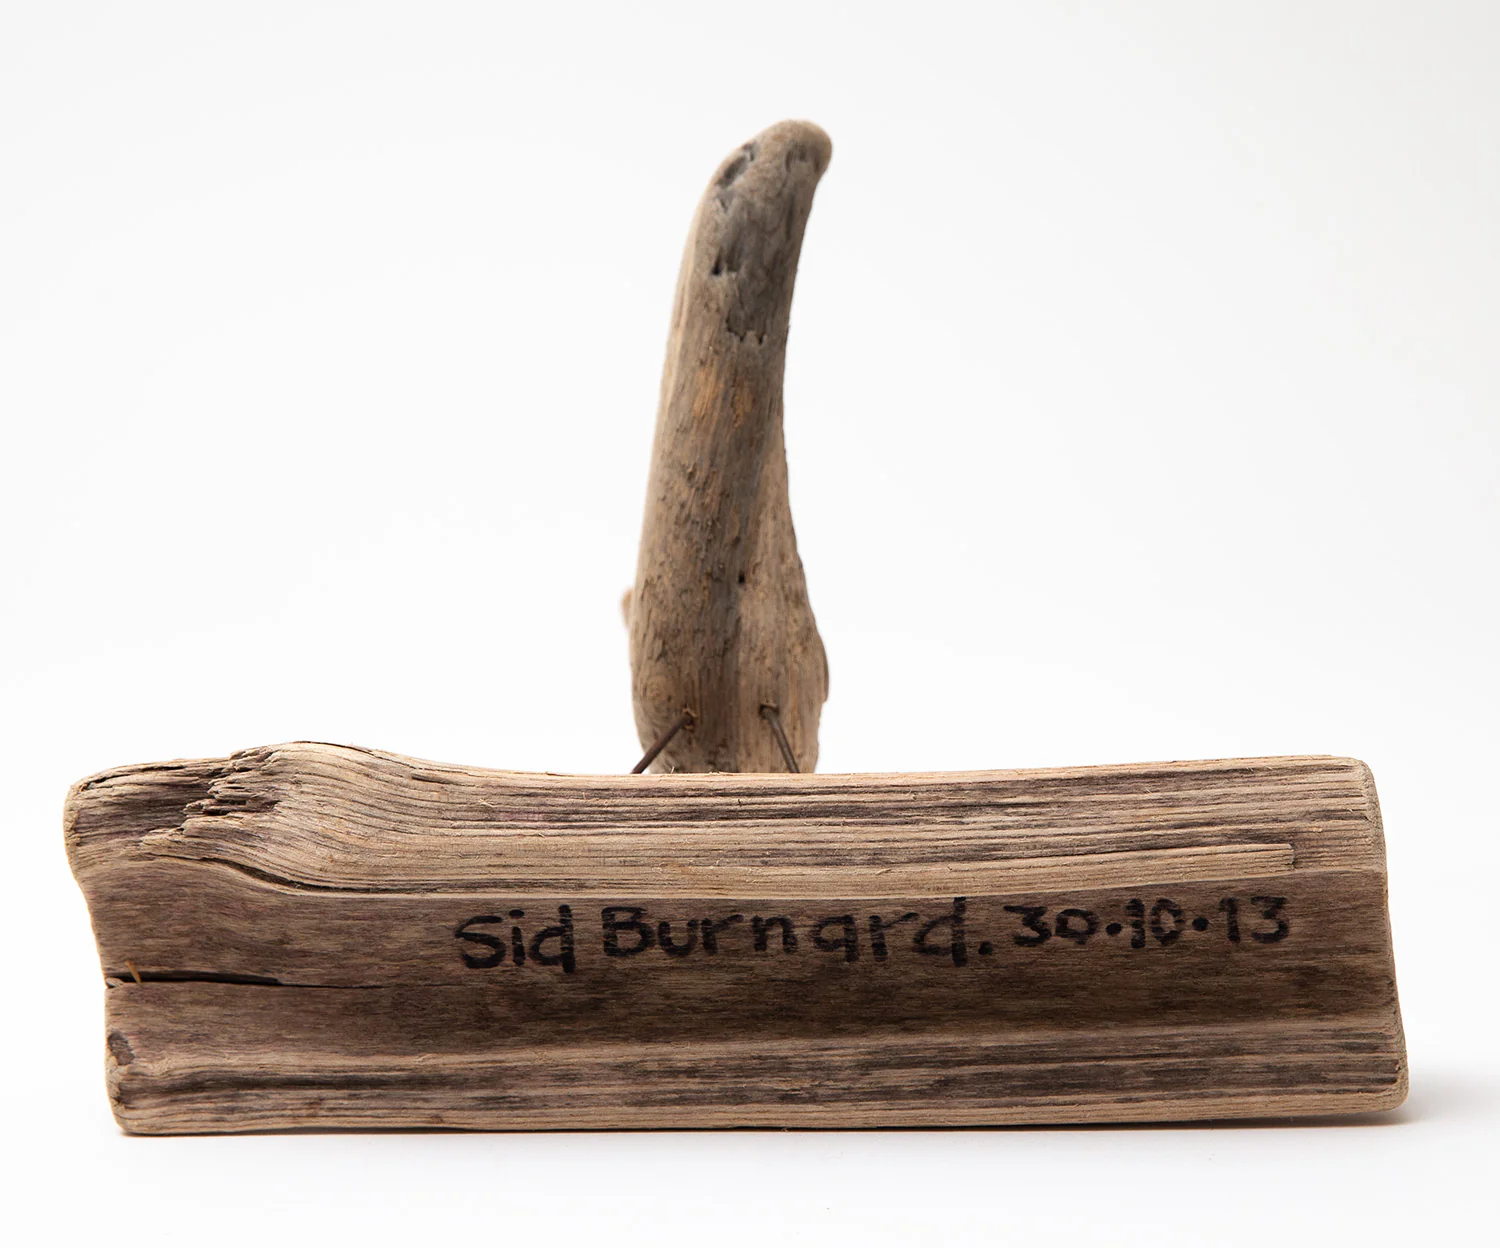 Sid Burnard. 30.10.13